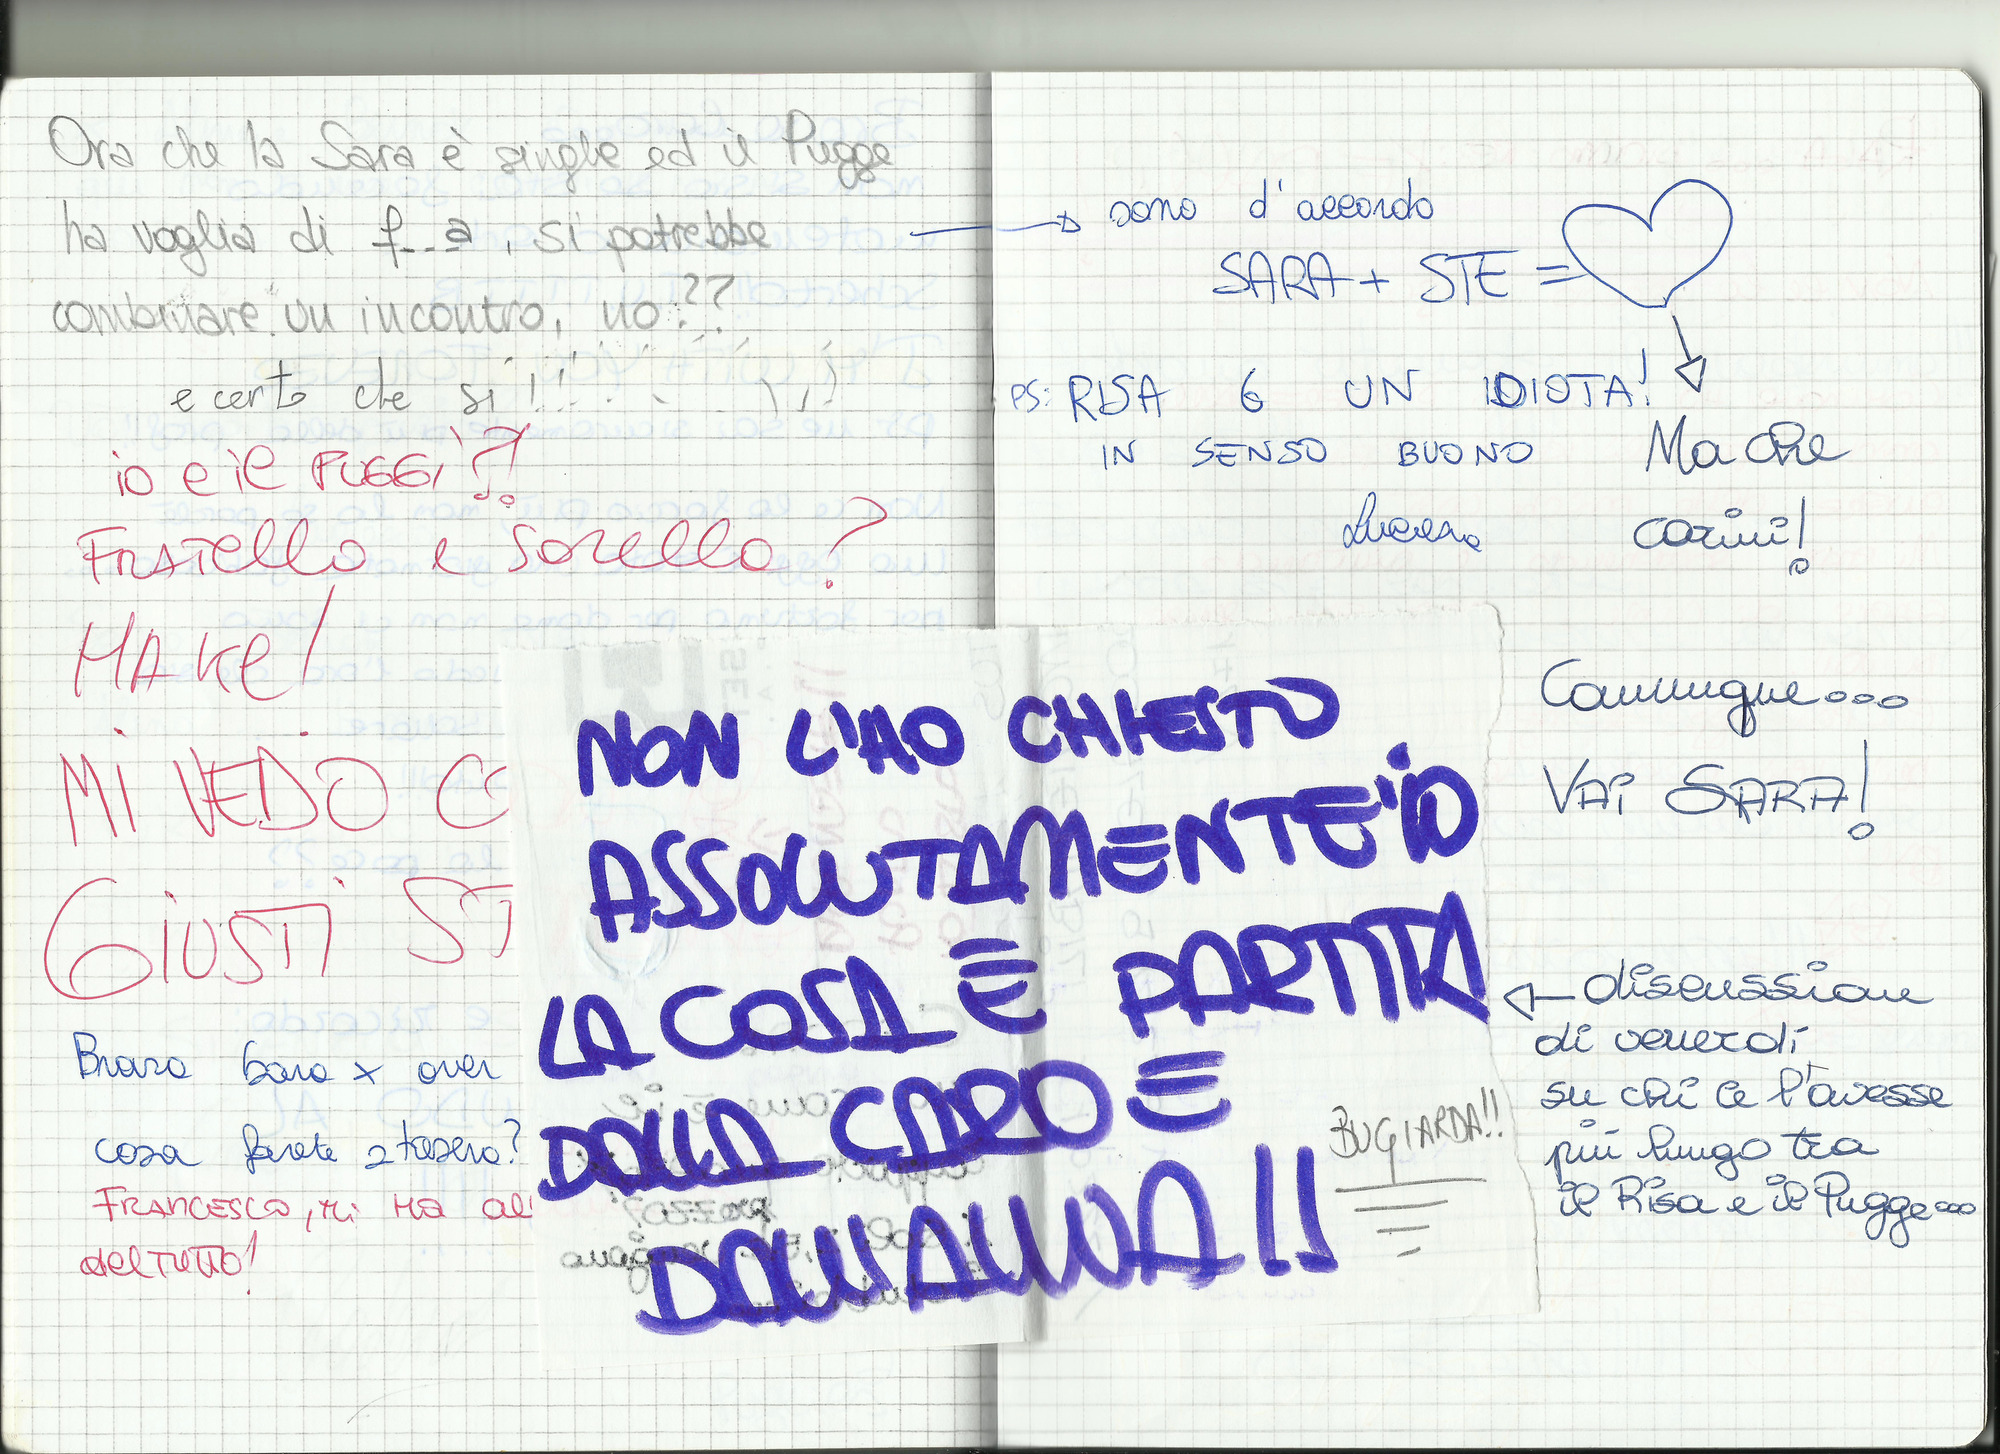 Ora che la Sara è single ed il Pugge
ha voglia di f--a, si potrebbe
combinare un incontro, no??
e certo che si!!
io e il PUGGI??
FRATello e SORello?
HAKe!
MI VEDO CO
GIUSTI ST
Brava Sara x over
cosa farete stasera?
FRANCESCO, MI HA
del TuTTo!
sono d'accordo
SARA + STE =
PS: RISA 6 UN IDIOTA!
IN SENSO BUONO
Ma che
carini!
Comunque...
VAi SARA!
NON L'HO CHIESTO
ASSOLUTAMENTE IO
LA COSA È PARTITA
DALLA CARO E
DALL'ALLIVA!!
BUGIARDA!!
discussion
di venerdì
su chi ce l'avesse
più lungo tra
il Risa e il Pugge...